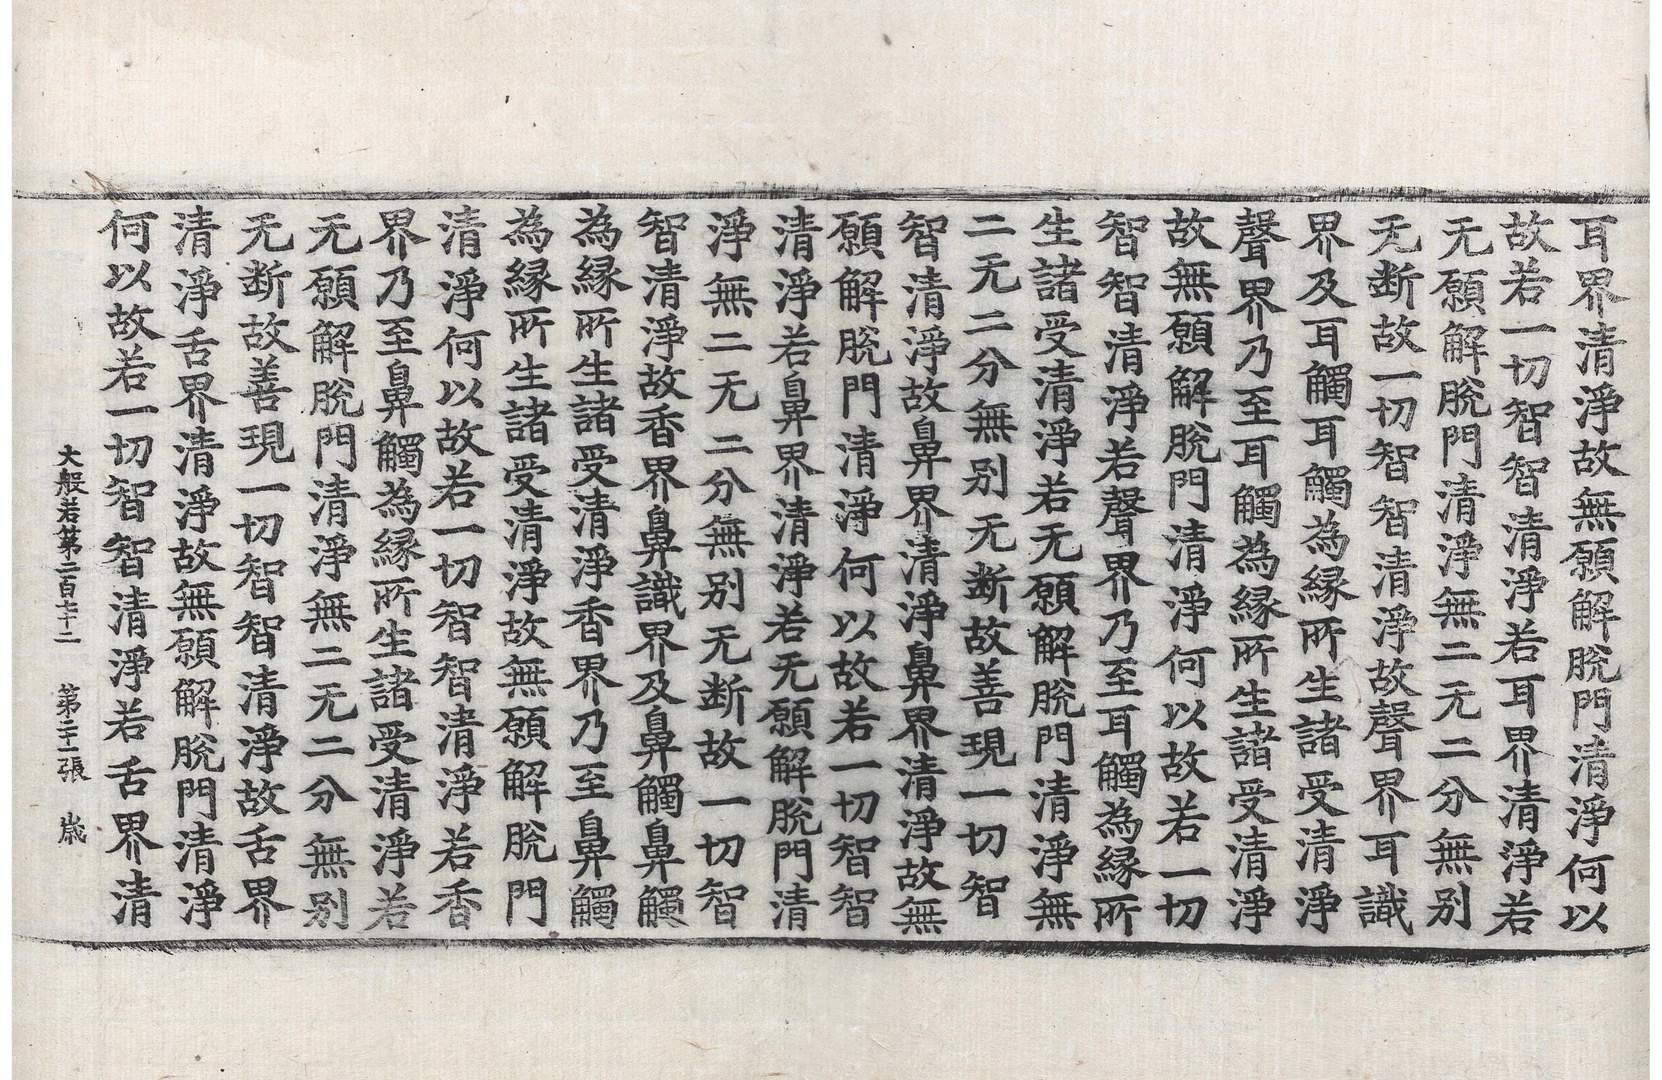 耳界清淨故無願解脫門清淨何以
故若一切智智清淨若耳界清淨若
无願解脫門清淨無二无二分無別
无断故一切智智清淨故聲界耳識
界及耳觸耳觸為縁所生諸受清淨
聲界乃至耳觸為縁所生諸受清淨
故無願解脫門清淨何以故若一切
智智清淨若聲界乃至耳觸為縁所
生諸受清淨若无願解脫門清淨無
二无二分無別无断故善現一切智
智清淨故鼻界清淨鼻界清淨故無
願解脫門清淨何以故若一切智智
清淨若鼻界清淨若无願解脫門清
淨無二无二分無別无断故一切智
智清淨故香界鼻識界及鼻觸鼻觸
為縁所生諸受清淨香界乃至鼻觸
為縁所生諸受清淨故無願解脫門
清淨何以故若一切智智清淨若香
界乃至鼻觸為縁所生諸受清淨若
无願解脫門清淨無二无二分無別
无断故善現一切智智清淨故舌界
清淨舌界清淨故無願解脫門清淨
何以故若一切智智清淨若舌界清
大般若第二百七十二 第二十一張 歲